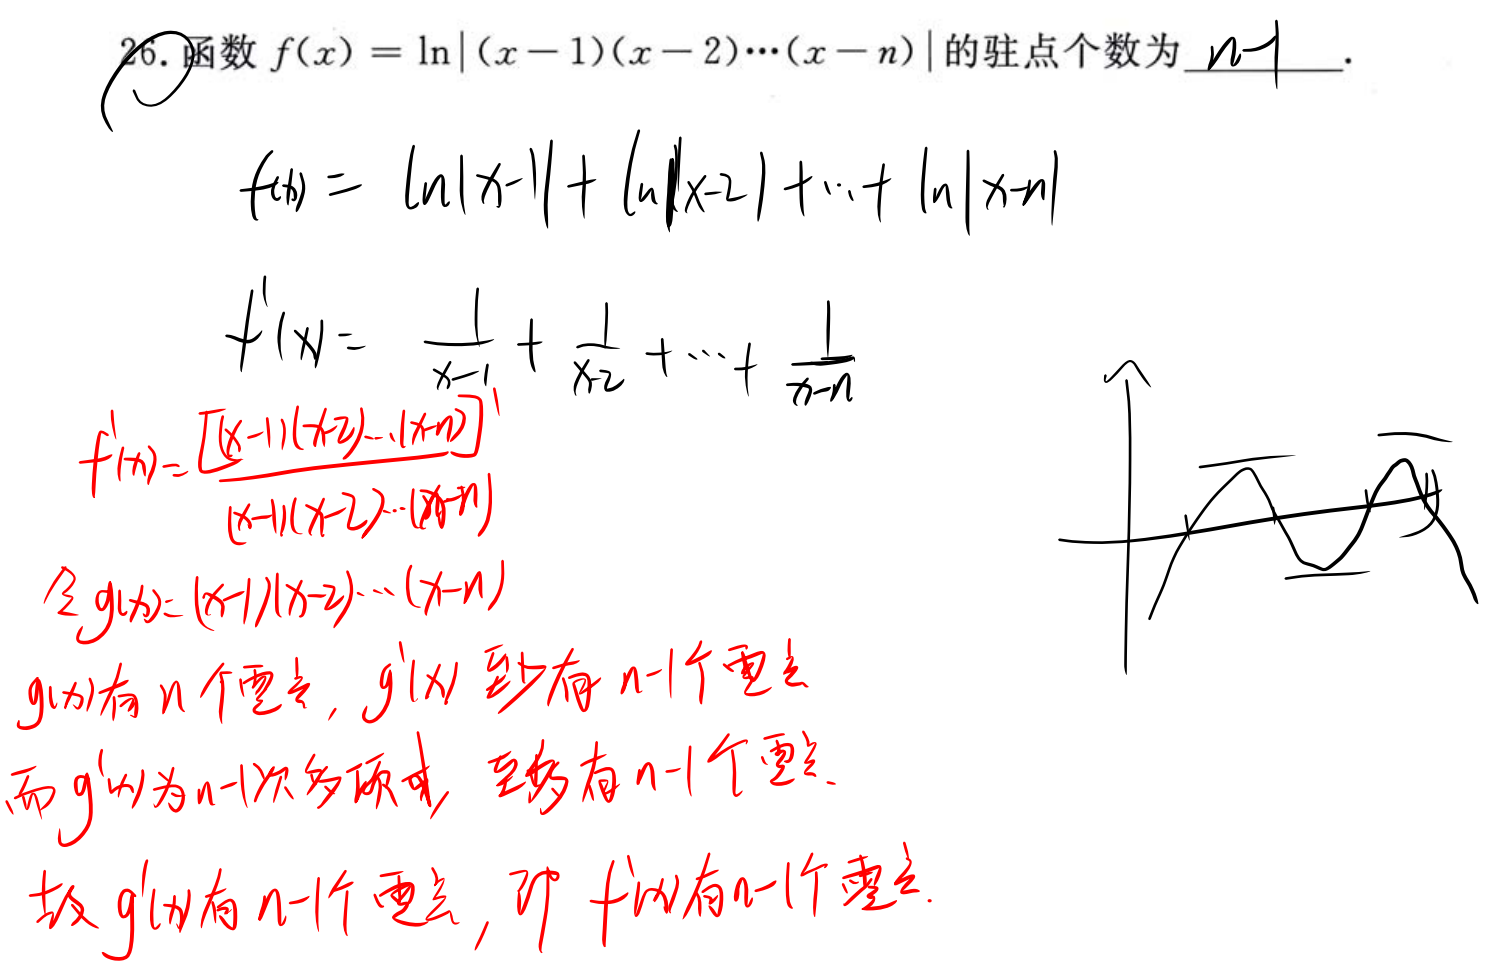 26. 函数 f(x) = ln|(x-1)(x-2)…(x-n)| 的驻点个数为 n-1 .
f(x) = ln|x-1| + ln|x-2| + … + ln|x-n|
f'(x) = 1/(x-1) + 1/(x-2) + … + 1/(x-n)
f'(x) = [(x-1)(x-2)…(x-n)]' / (x-1)(x-2)…(x-n)
令 g(x) = (x-1)(x-2)…(x-n)
g(x)有 n 个零点, g'(x) 至少有 n-1个零点
而 g'(x)为 n-1次多项式, 至多有 n-1个零点.
故 g'(x)有 n-1个零点, 即 f'(x)有n-1个零点.